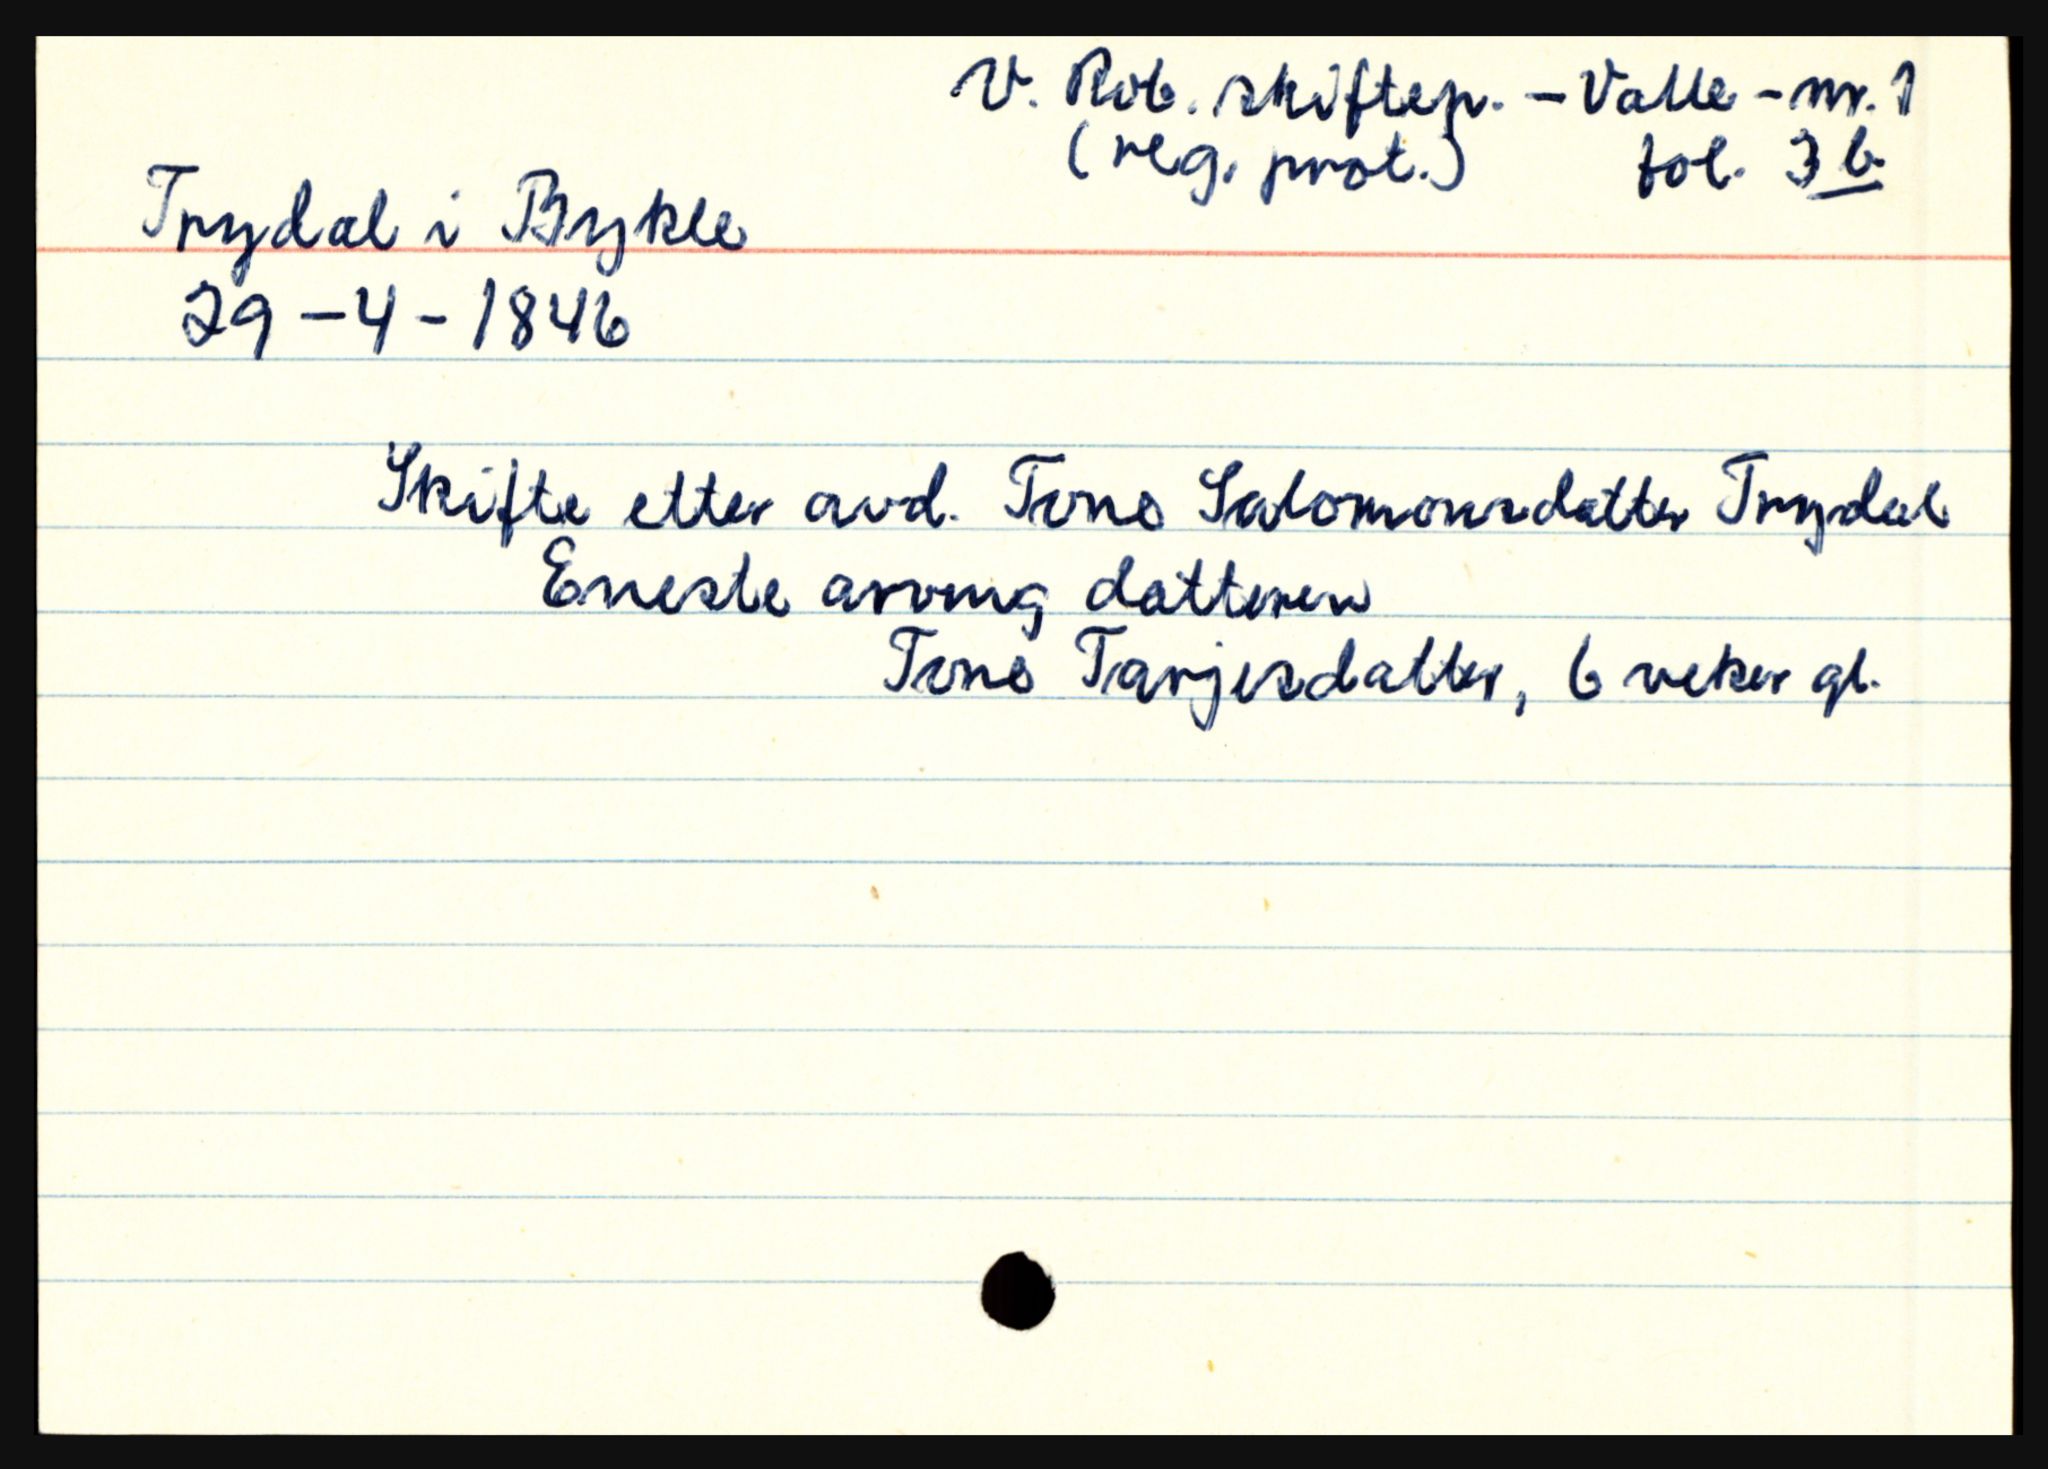 V. Rob. skiftep. - Valle - nr. 1
(reg. prot.) fol. 3 b
Trydal i Bykle
29-4-1846
Skifte etter avd. Tone Salomonsdatter Trydal
Eneste arving datteren
Tone Tarjesdatter, 6 veker gl.